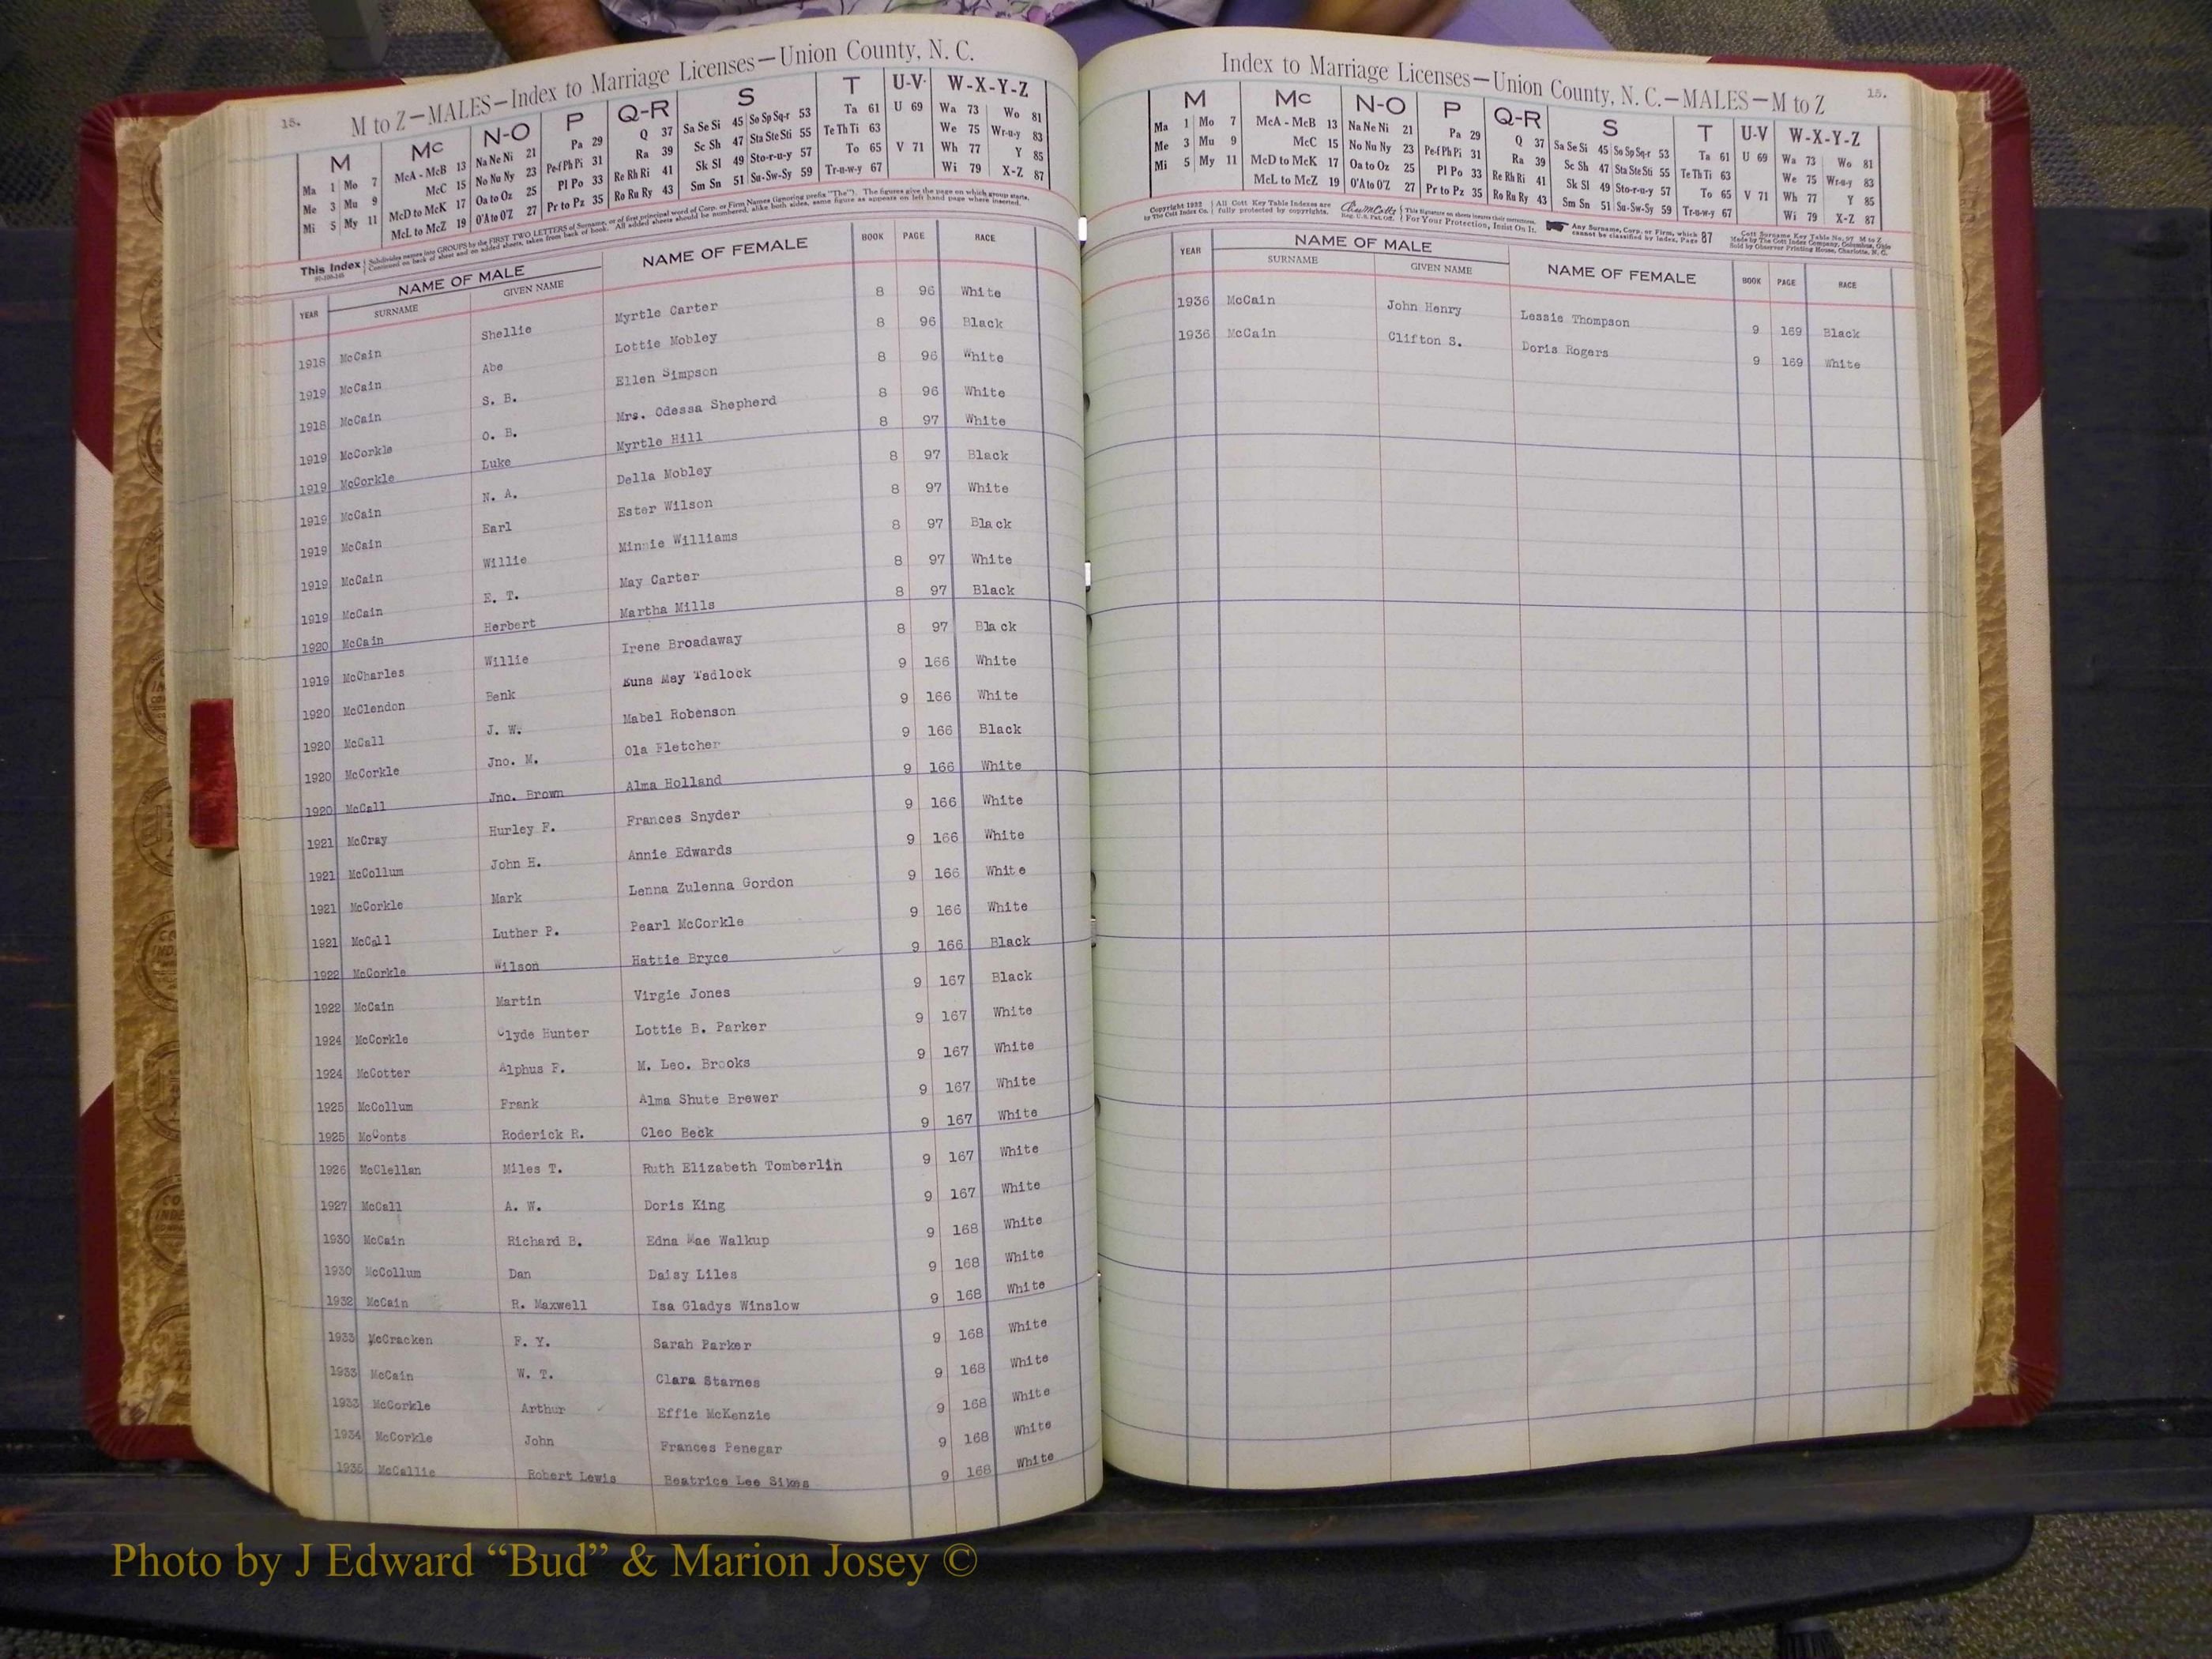 15. M to Z—MALES—Index to Marriage Licenses—Union County, N. C.
M Mc N-O P Q-R S T U-V W-X-Y-Z
Ma 1 Mo 7 McA - McB 13 Na Ne Ni 21 Pa 29 Q 37 Sa Se Si 45 So Sp Sq-r 53 Ta 61 U 69 Wa 73 Wo 81
Me 3 Mu 9 McC 15 No Nu Ny 23 Pe-f Ph Pi 31 Ra 39 Sc Sh 47 Sta Ste Sti 55 Te Th Ti 63 We 75 Wr-u-y 83
Mi 5 My 11 McD to McK 17 Oa to Oz 25 Pl Po 33 Re Rh Ri 41 Sk Sl 49 Sto-r-u-y 57 To 65 V 71 Wh 77 Y 85
McL to McZ 19 O'A to O'Z 27 Pr to Pz 35 Ro Ru Ry 43 Sm Sn 51 Su-Sw-Sy 59 Tr-u-w-y 67 Wi 79 X-Z 87
This Index Subdivides names into GROUPS by the FIRST TWO LETTERS of Surname, or of first principal word of Corp. or Firm Names (ignoring prefix "The"). The figures give the page on which group starts.
Continued on back of sheet and on added sheets, taken from back of book. All added sheets should be numbered, alike both sides, same figure as appears on left hand page where inserted.
YEAR NAME OF MALE NAME OF FEMALE BOOK PAGE RACE
SURNAME GIVEN NAME
1918 McCain Shellie Myrtle Carter 8 96 White
1919 McCain Abe Lottie Mobley 8 96 Black
1918 McCain S. B. Ellen Simpson 8 96 White
1919 McCorkle O. B. Mrs. Odessa Shepherd 8 96 White
1919 McCorkle Luke Myrtle Hill 8 97 White
1919 McCain N. A. Della Mobley 8 97 Black
1919 McCain Earl Ester Wilson 8 97 White
1919 McCain Willie Minnie Williams 8 97 Black
1919 McCain E. T. May Carter 8 97 White
1920 McCain Herbert Martha Mills 8 97 Black
1919 McCharles Willie Irene Broadaway 8 97 Black
1920 McClendon Benk Euna May Tadlock 9 166 White
1920 McCall J. W. Mabel Robenson 9 166 White
1920 McCorkle Jno. M. Ola Fletcher 9 166 Black
1920 McCall Jno. Brown Alma Holland 9 166 White
1921 McCray Hurley F. Frances Snyder 9 166 White
1921 McCollum John H. Annie Edwards 9 166 White
1921 McCorkle Mark Lenna Zulenna Gordon 9 166 White
1921 McCall Luther P. Pearl McCorkle 9 166 White
1922 McCorkle Wilson Hattie Bryce 9 166 Black
1922 McCain Martin Virgie Jones 9 167 Black
1924 McCorkle Clyde Hunter Lottie B. Parker 9 167 White
1924 McCotter Alphus F. M. Leo. Brooks 9 167 White
1925 McCollum Frank Alma Shute Brewer 9 167 White
1925 McConts Roderick R. Cleo Beck 9 167 White
1926 McClellan Miles T. Ruth Elizabeth Tomberlin 9 167 White
1927 McCall A. W. Doris King 9 167 White
1930 McCain Richard B. Edna Mae Walkup 9 168 White
1930 McCollum Dan Daisy Liles 9 168 White
1932 McCain R. Maxwell Isa Gladys Winslow 9 168 White
1933 McCracken F. Y. Sarah Parker 9 168 White
1933 McCain W. T. Clara Starnes 9 168 White
1933 McCorkle Arthur Effie McKenzie 9 168 White
1934 McCorkle John Frances Penegar 9 168 White
1935 McCallie Robert Lewis Beatrice Lee Sikes 9 168 White
Index to Marriage Licenses—Union County, N. C.—MALES—M to Z 15.
M Mc N-O P Q-R S T U-V W-X-Y-Z
Ma 1 Mo 7 McA - McB 13 Na Ne Ni 21 Pa 29 Q 37 Sa Se Si 45 So Sp Sq-r 53 Ta 61 U 69 Wa 73 Wo 81
Me 3 Mu 9 McC 15 No Nu Ny 23 Pe-f Ph Pi 31 Ra 39 Sc Sh 47 Sta Ste Sti 55 Te Th Ti 63 We 75 Wr-u-y 83
Mi 5 My 11 McD to McK 17 Oa to Oz 25 Pl Po 33 Re Rh Ri 41 Sk Sl 49 Sto-r-u-y 57 To 65 V 71 Wh 77 Y 85
McL to McZ 19 O'A to O'Z 27 Pr to Pz 35 Ro Ru Ry 43 Sm Sn 51 Su-Sw-Sy 59 Tr-u-w-y 67 Wi 79 X-Z 87
Copyright 1932 by The Cott Index Co. All Cott Key Table Indexes are fully protected by copyrights. Reg. U.S. Pat. Off. This Signature on sheets insures their correctness. For Your Protection, Insist On It. Any Surname, Corp. or Firm, which cannot be classified by Index, Page 87 Cott Surname Key Table No. 97 M to Z Made by The Cott Index Company, Columbus, Ohio Sold by Observer Printing House, Charlotte, N. C.
YEAR NAME OF MALE NAME OF FEMALE BOOK PAGE RACE
SURNAME GIVEN NAME
1936 McCain John Henry Lessie Thompson 9 169 Black
1936 McCain Clifton S. Doris Rogers 9 169 White
Photo by J Edward “Bud” & Marion Josey ©